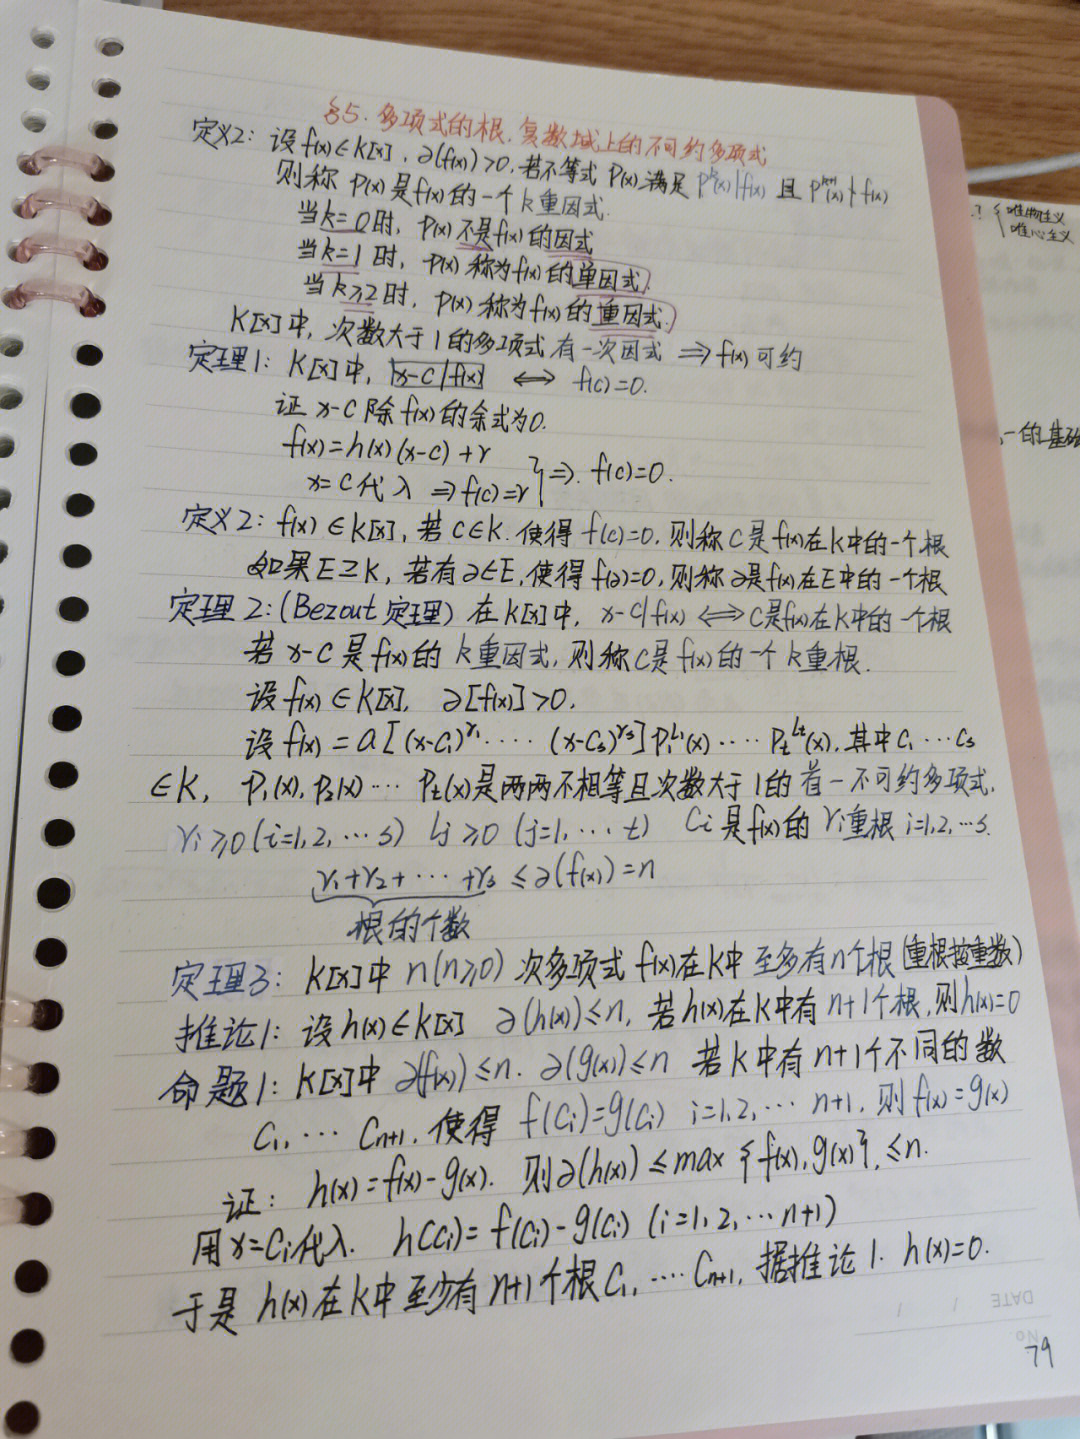 §5. 多项式的根.复数域上的不可约多项式
定义2: 设f(x)∈K[x], ∂(f(x))>0, 若不等式 P(x)满足 Pᵏ(x)|f(x) 且 Pᵏ⁺¹(x)∤f(x)
则称 P(x)是f(x)的一个k重因式.
当k=0时, P(x)不是f(x)的因式
当k=1时, P(x)称为f(x)的单因式.
当k≥2时, P(x)称为f(x)的重因式.
K[x]中, 次数大于1的多项式有一次因式 ⇒f(x)可约
定理1: K[x]中, x-c|f(x) ⇔ f(c)=0.
证 x-c除f(x)的余式为0.
f(x)=h(x)(x-c)+r
x=c代入 ⇒f(c)=r } ⇒. f(c)=0.
定义2: f(x)∈K[x], 若c∈K.使得f(c)=0, 则称c是f(x)在K中的一个根
如果E⊇K, 若有∂∈E,使得f(∂)=0,则称∂是f(x)在E中的一个根
定理2:(Bezout定理) 在K[x]中, x-c|f(x) ⇔c是f(x)在K中的一个根
若x-c是f(x)的k重因式,则称c是f(x)的一个k重根.
设f(x)∈K[x], ∂[f(x)]>0.
设f(x)=a[(x-c₁)^r₁····(x-cₛ)^rₛ]P₁^L₁(x)····Pₜ^Lₜ(x),其中c₁···cₛ
∈K, P₁(x),P₂(x)···Pₜ(x)是两两不相等且次数大于1的首一不可约多项式,
rᵢ≥0(i=1,2,···s) Lⱼ≥0(j=1,···t) Cᵢ是f(x)的rᵢ重根 i=1,2,···s.
r₁+r₂+···+rₛ≤∂(f(x))=n
根的个数
定理3: K[x]中n(n≥0)次多项式f(x)在K中至多有n个根(重根按重数)
推论1: 设h(x)∈K[x] ∂(h(x))≤n, 若h(x)在K中有n+1个根,则h(x)=0
命题1: K[x]中∂(f(x))≤n. ∂(g(x))≤n 若K中有n+1个不同的数
C₁,···Cₙ₊₁,使得f(Cᵢ)=g(Cᵢ) i=1,2,···n+1,则f(x)=g(x)
证: h(x)=f(x)-g(x). 则∂(h(x))≤max{f(x),g(x)},≤n.
用x=Cᵢ代入. h(Cᵢ)=f(Cᵢ)-g(Cᵢ) (i=1,2,···n+1)
于是h(x)在K中至少有n+1个根C₁,····Cₙ₊₁,据推论1. h(x)=0.
DATE / /
No.
79
唯物主义
唯心主义
一的基础